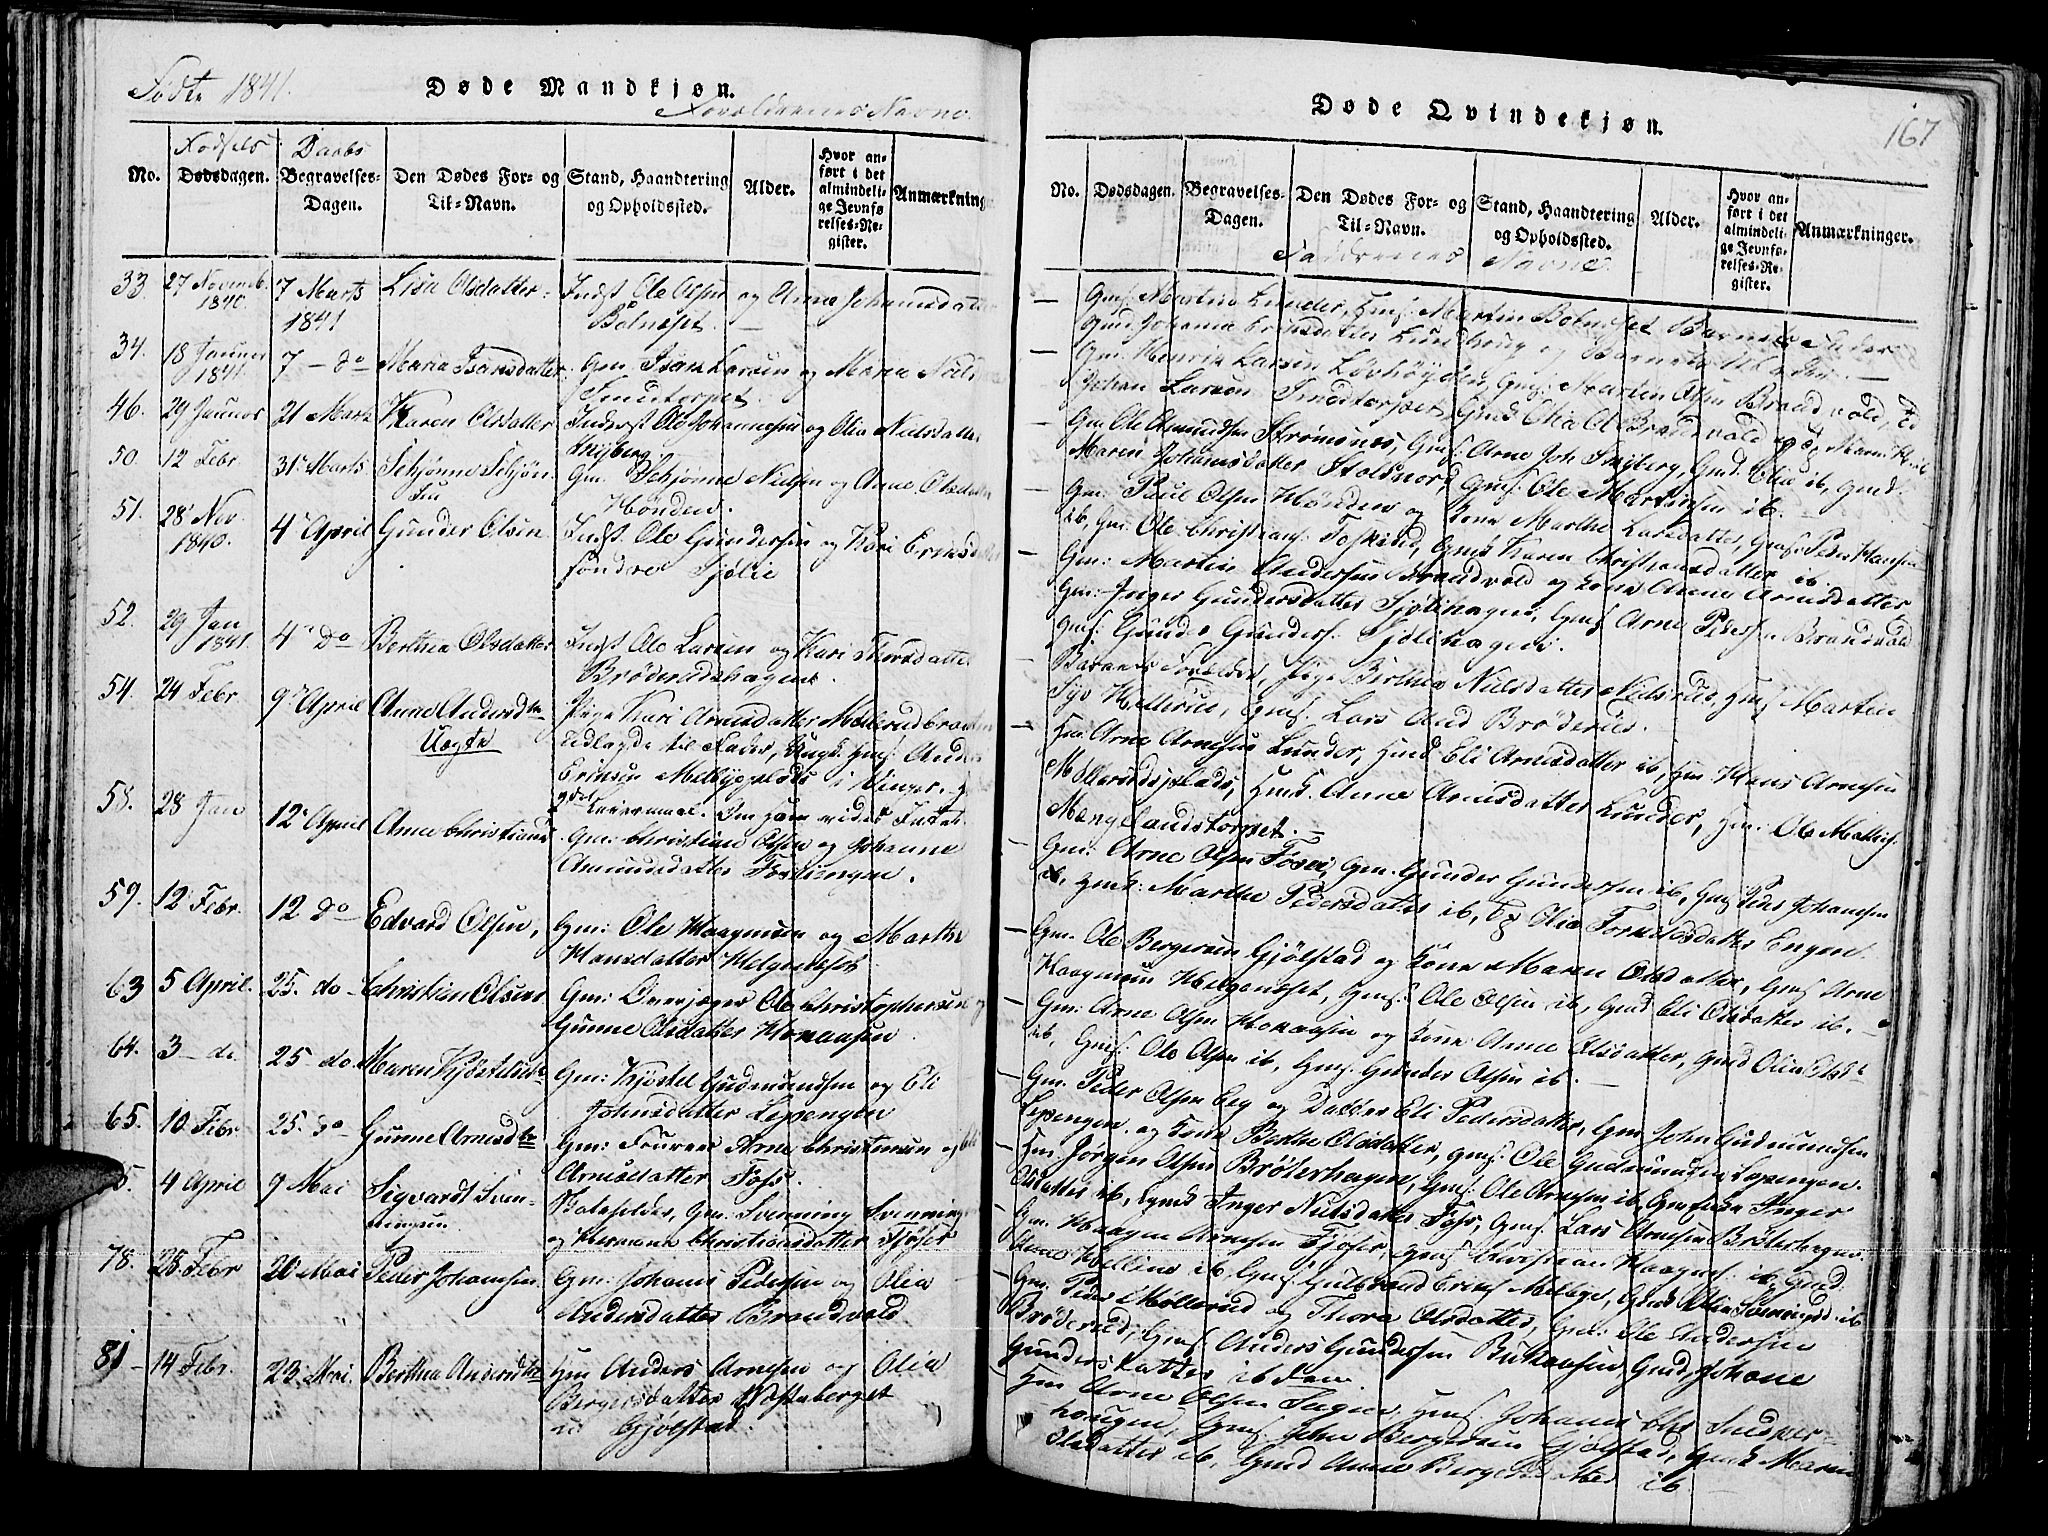 Fødte 1841.
Døde Mandkjøn.
Forældrenes Navne.
Fødsels Daabs
No. Dødsdagen. Begravelses-Dagen. Den Dødes For- og Til-Navn. Stand, Haandtering og Opholdssted. Alder. Hvor anført i det almindelige Jevnførelses-Register. Anmærkning
33. 27 Novemb. 1840. 7 Marts 1841 Lisa Olsdatter Indst Ole Olsen og Anne Johannsdatter
Bolneset.
34. 18 Januar 1841. 7 - do Maria Isaksdatter Gm. Isak Larsen og Maria Niels
Smedtorpet.
46. 29 Januar 21 Marts Karen Olsdatter Inderst Ole Johannesen og Olia Nielsdatter
Myberg.
50. 12 Febr. 31 Marts Schjønne Schjønsen Gm. Schjønne Nielsen og Anne Olsdatter
Hønden.
51. 28 Nov. 1840. 4 April Gunder Olsen Indst Ole Gundersen og Kari Eriksdatter
søndre Sjølie
52. 29 Jan 1841. 4 do Berthea Olsdatter Indst Ole Larsen og Kari Thorsdatter
Brøderudshagen.
54. 24 Febr 9 April Anne Andersdtr Pige Kari Arnesdatter Møllerudbraaten
Uægte
Udlagde til Fader, Ungk. Gmsf. Anders
Eriksen Melbyeplads i Vinger.
2det Leiermaal.
58. 28 Jan 12 April Anne Christians Gm. Christian Olsen og Johanne
Amundsdatter Fossengen.
59. 12 Febr. 12 do Edvard Olsen, Gm: Ole Haagensen og Marthe
Hansdatter Helgeneset
63 5 April. 25. do Christian Olsen Gm: Overjæger Ole Christophersen og
Gunne Olsdatter Hokaasen.
64. 3 - do 25 do. Maren Kjøstelsdtr Gm: Kjøstel Gudmundsen og Eli
Johnsdatter Lepengen
65. 10 Febr 25. do Gunne Arnesdtr Gm: Arne Christensen og Eli
Arnesdatter Foss.
4 April 9 Mai Sigvardt Svenningsen Gm. Svenning Svenning
og Hermana Christiansdatter Fjøser
78. 28. Febr 20 Mai Peder Johansen. Gm: Johannes Pedersen og Olia
Andersdatter Brandvold
81 14 Febr. 23. Mai. Berthea Andersdtr Hm Anders Arnesen og Olia
Bergersdatter Nostaberget
Gjølstad.
167
Døde Qvindekjøn.
Faddrenes Navne.
No. Dødsdagen. Begravelses-Dagen. Den Dødes For- og Til-Navn. Stand, Haandtering og Opholdssted. Alder. Hvor anført i det almindelige Jevnførelses-Register. Anmærkninger.
Gmsf. Martin Lunder, Gmsf. Martin Bolneset Barnets Fader
Gmd. Johanne Eriksdatter Lundhoug og Barnets Moder.
Gm. Henrik Larsen Løvhøyden, Gmsf. Martin Olsen Brandvold,
Johan Larsen Smedtorpet, Gmd. Olia O. Brandvold og
Gm Ole Amundsen Strømsnes, Gmsf. Arne Joh. Myberg, Gmd. Olia ib, Gmd.
Maren Johannsdatter Stolsnor, Gmsf. Ole Martinsen ib.
Gm. Paul Olsen Hønden og Kone Marthe Larsdatter, Gmsf. Peder Hansen
ib, Gm. Ole Christians. Foskind, Gmd. Karen Christiansdatter ib.
Gm: Martin Andersen Brandvold og Kone Anne Arnesdatter
Gm: Inger Gundersdatter Sjølihagen, Gmsf Arne Pedersen Brandvold
Gmsf: Gunder Gunders. Sjølihagen.
Barnets Forældre, Pige Birthea Nielsdatter Nielsrud, Gmsf Martin
Syv Hellerud, Gmsf. Lars And Brøderud.
Hm Arne Arnesen Lunder, Gmd Eli Arnesdatter ib, Hm Hans Arnesen
Møllerudsplads, Hmd. Anne Arnesdatter Lunder, Hm: Ole Mathis.
Manglandstorpet.
Gm. Arne Olsen Fosen, Gm. Gunder Gundersen ib, Gmsf Peder Johansen
ib, Gmd: Marthe Pedersdatter ib, Pg Olia Torkelsdatter Engen.
Gm. Ole Bergersen Gjølstad og Kone Maren Olsdatter, Gmsf Arne
Haagensen Helgeneset, Gmsf. Ole Olsen ib, Gmd Eli Olsdatter ib.
Gm: Arne Olsen Hokaasen og Kone Anne Olsdatter, Gmd Olia Olsdtr
ib, Gmsf. Ole Olsen ib, Gmsf. Gunder Olsen ib.
Gm. Peder Olsen Eeg og Datter Eli Pedersdatter, Gm. John Gudmundsen
Lepengen og Kone Berthe Olsdatter, Gmsf. Ole Gudmundsen Lepengen.
Hm. Jørgen Olsen Brøterhagen, Gmsf. Ole Arnesen ib, Inger
Olsdatter ib, Gmd Inger Nielsdatter Foss, Gmsf. Lars Arnesen Brøterhagen.
Gm. Haagen Arnesen Fjøser, Gmsf Christian Haagens. ib, Gmd.
Anne Helline ib, Gmsf. Gulbrand Eriks. Melbye, Gmd Olia Svenningsd ib
Gm: Peder Møllerud og Thora Olsdatter, Gm: Ole Andersen
Brøderud, Gmsf Anders Gundersen Buhaasen, Gmd. Johanne
Gundersdatter ibdem.
Hm Arne Olsen Hmsf. Johannes Ols. Snedper-
hougen, Gmsf. John Bergersen Gjølstad, Gmd Maren
Olsdatter ib, Gmd Anne Bergersdatter ib